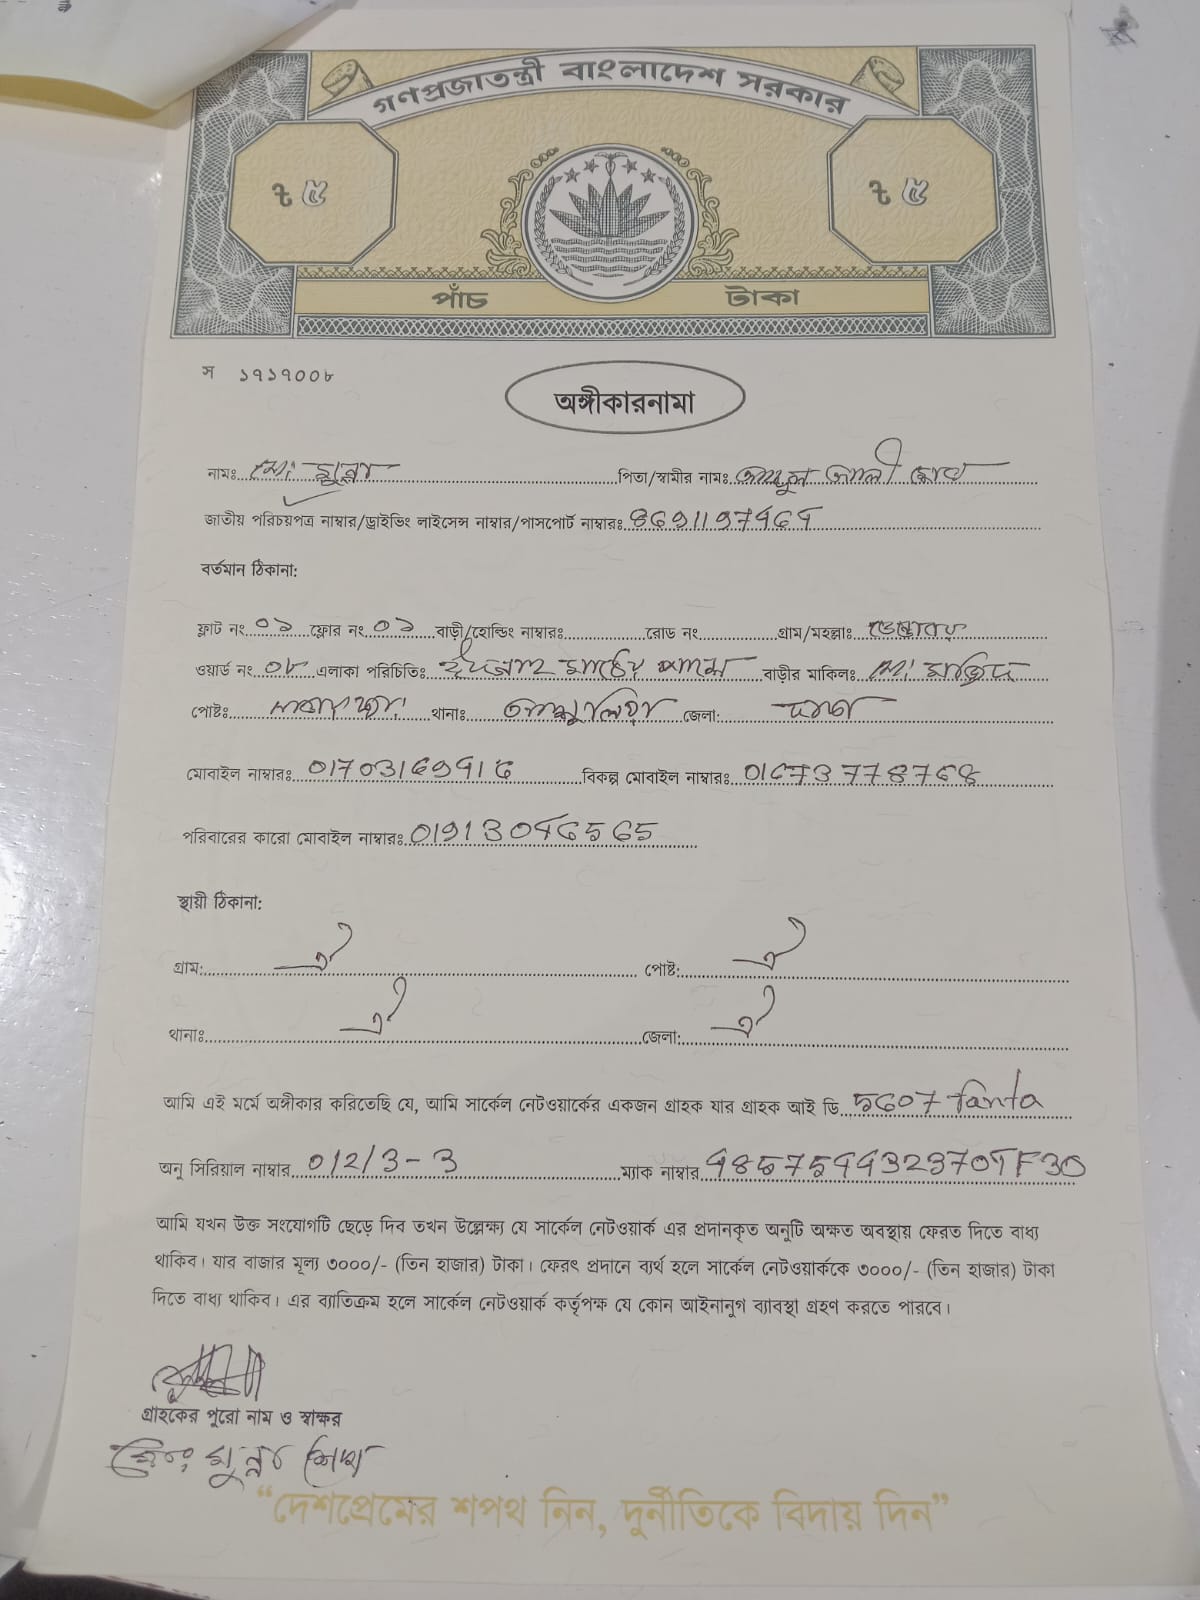 গণপ্রজাতন্ত্রী বাংলাদেশ সরকার
৳ ৫ ৳ ৫
পাঁচ টাকা
স ১৭১৭০০৮
অঙ্গীকারনামা
নামঃ মোঃ মুন্না পিতা/স্বামীর নামঃ আলী
জাতীয় পরিচয়পত্র নাম্বার/ড্রাইভিং লাইসেন্স নাম্বার/পাসপোর্ট নাম্বারঃ
বর্তমান ঠিকানা:
ফ্লাট নং ০১ ফ্লোর নং ০১ বাড়ী/হোল্ডিং নাম্বারঃ রোড নং গ্রাম/মহল্লাঃ
ওয়ার্ড নং ০৮ এলাকা পরিচিতিঃ মাঠের পাশে বাড়ীর মাকিলঃ
পোষ্টঃ থানাঃ জেলা: ঢাকা
মোবাইল নাম্বারঃ বিকল্প মোবাইল নাম্বারঃ 01673778768
পরিবারের কারো মোবাইল নাম্বারঃ
স্থায়ী ঠিকানা:
গ্রাম: ঐ পোষ্ট: ঐ
থানাঃ ঐ জেলা: ঐ
আমি এই মর্মে অঙ্গীকার করিতেছি যে, আমি সার্কেল নেটওয়ার্কের একজন গ্রাহক যার গ্রাহক আই ডি 5607 fanta
অনু সিরিয়াল নাম্বার 012/3-3 ম্যাক নাম্বার
আমি যখন উক্ত সংযোগটি ছেড়ে দিব তখন উল্লেক্ষ্য যে সার্কেল নেটওয়ার্ক এর প্রদানকৃত অনুটি অক্ষত অবস্থায় ফেরত দিতে বাধ্য
থাকিব। যার বাজার মূল্য ৩০০০/- (তিন হাজার) টাকা। ফেরৎ প্রদানে ব্যর্থ হলে সার্কেল নেটওয়ার্ককে ৩০০০/- (তিন হাজার) টাকা
দিতে বাধ্য থাকিব। এর ব্যাতিক্রম হলে সার্কেল নেটওয়ার্ক কর্তৃপক্ষ যে কোন আইনানুগ ব্যাবস্থা গ্রহণ করতে পারবে।
গ্রাহকের পুরো নাম ও স্বাক্ষর
মোঃ মুন্না শেখ
“দেশপ্রেমের শপথ নিন, দুর্নীতিকে বিদায় দিন”